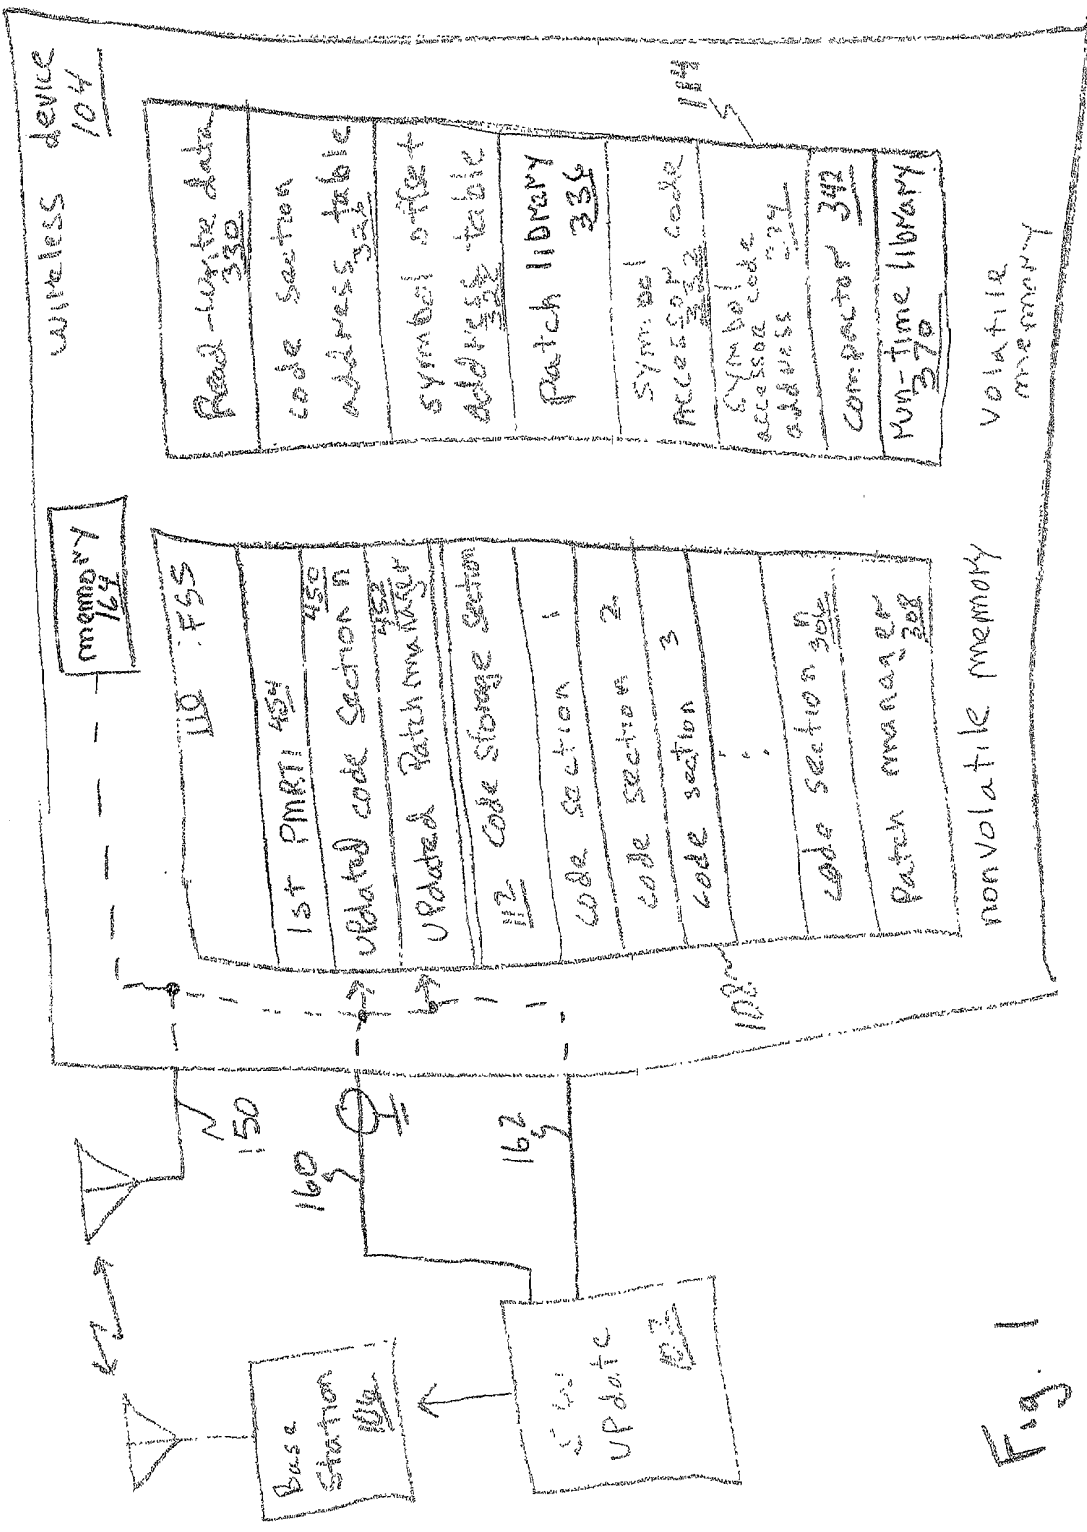 wireless device
104
memory
164
110 FSS
1st PMRTI 454
updated code section n
450
updated Patch manager
452
112 code storage section
code section 1
code section 2
code section 3
code section n
306
Patch manager
308
nonvolatile memory
108
Read-write data
330
code section
address table
326
symbol offset
address table
328
patch library
336
symbol
Accessor code
332
symbol
accessor code
address 334
compactor 342
run-time library
370
volatile
memory
114
150
160
162
Base
Station
106
S/W
update
102
Fig. 1